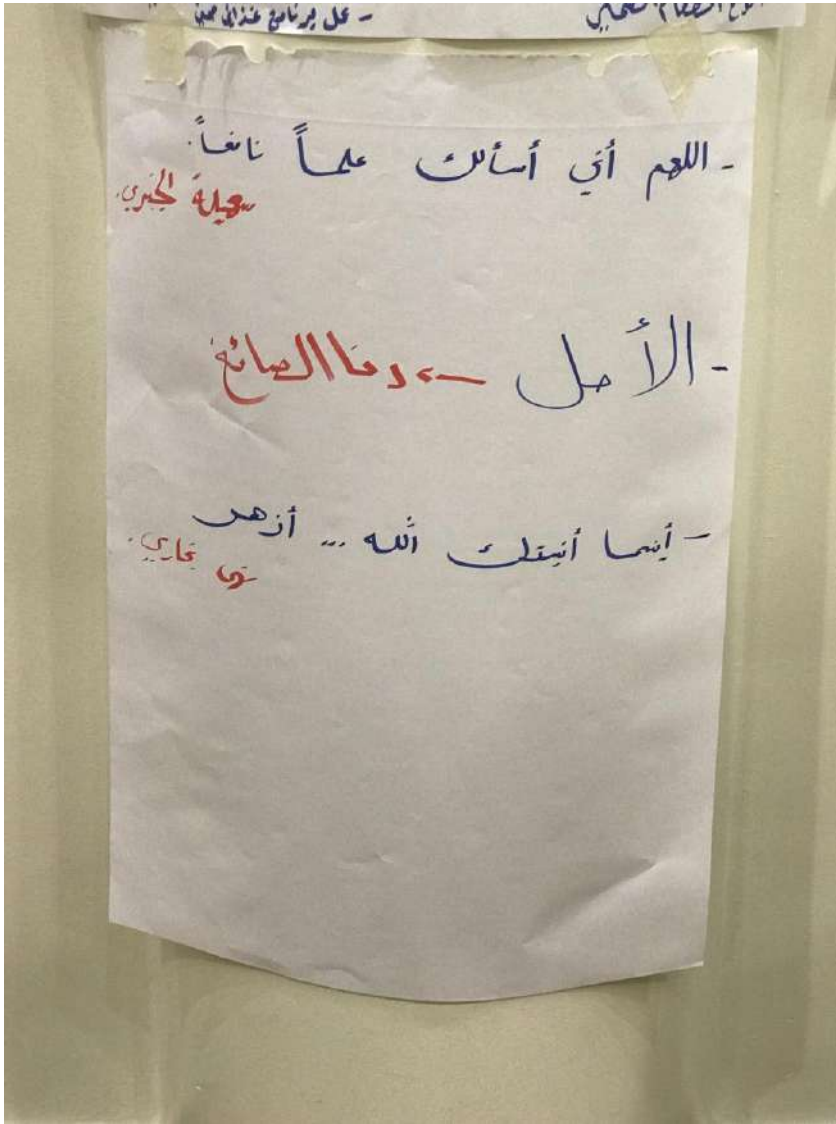 - عمل برنامج غذائي صحي
- اللهم أني أسألك علماً نافعاً.
الجبري
- الأمل ← رنا الصائغ
- أينما أنبتك الله ... أزهر
بخاري.